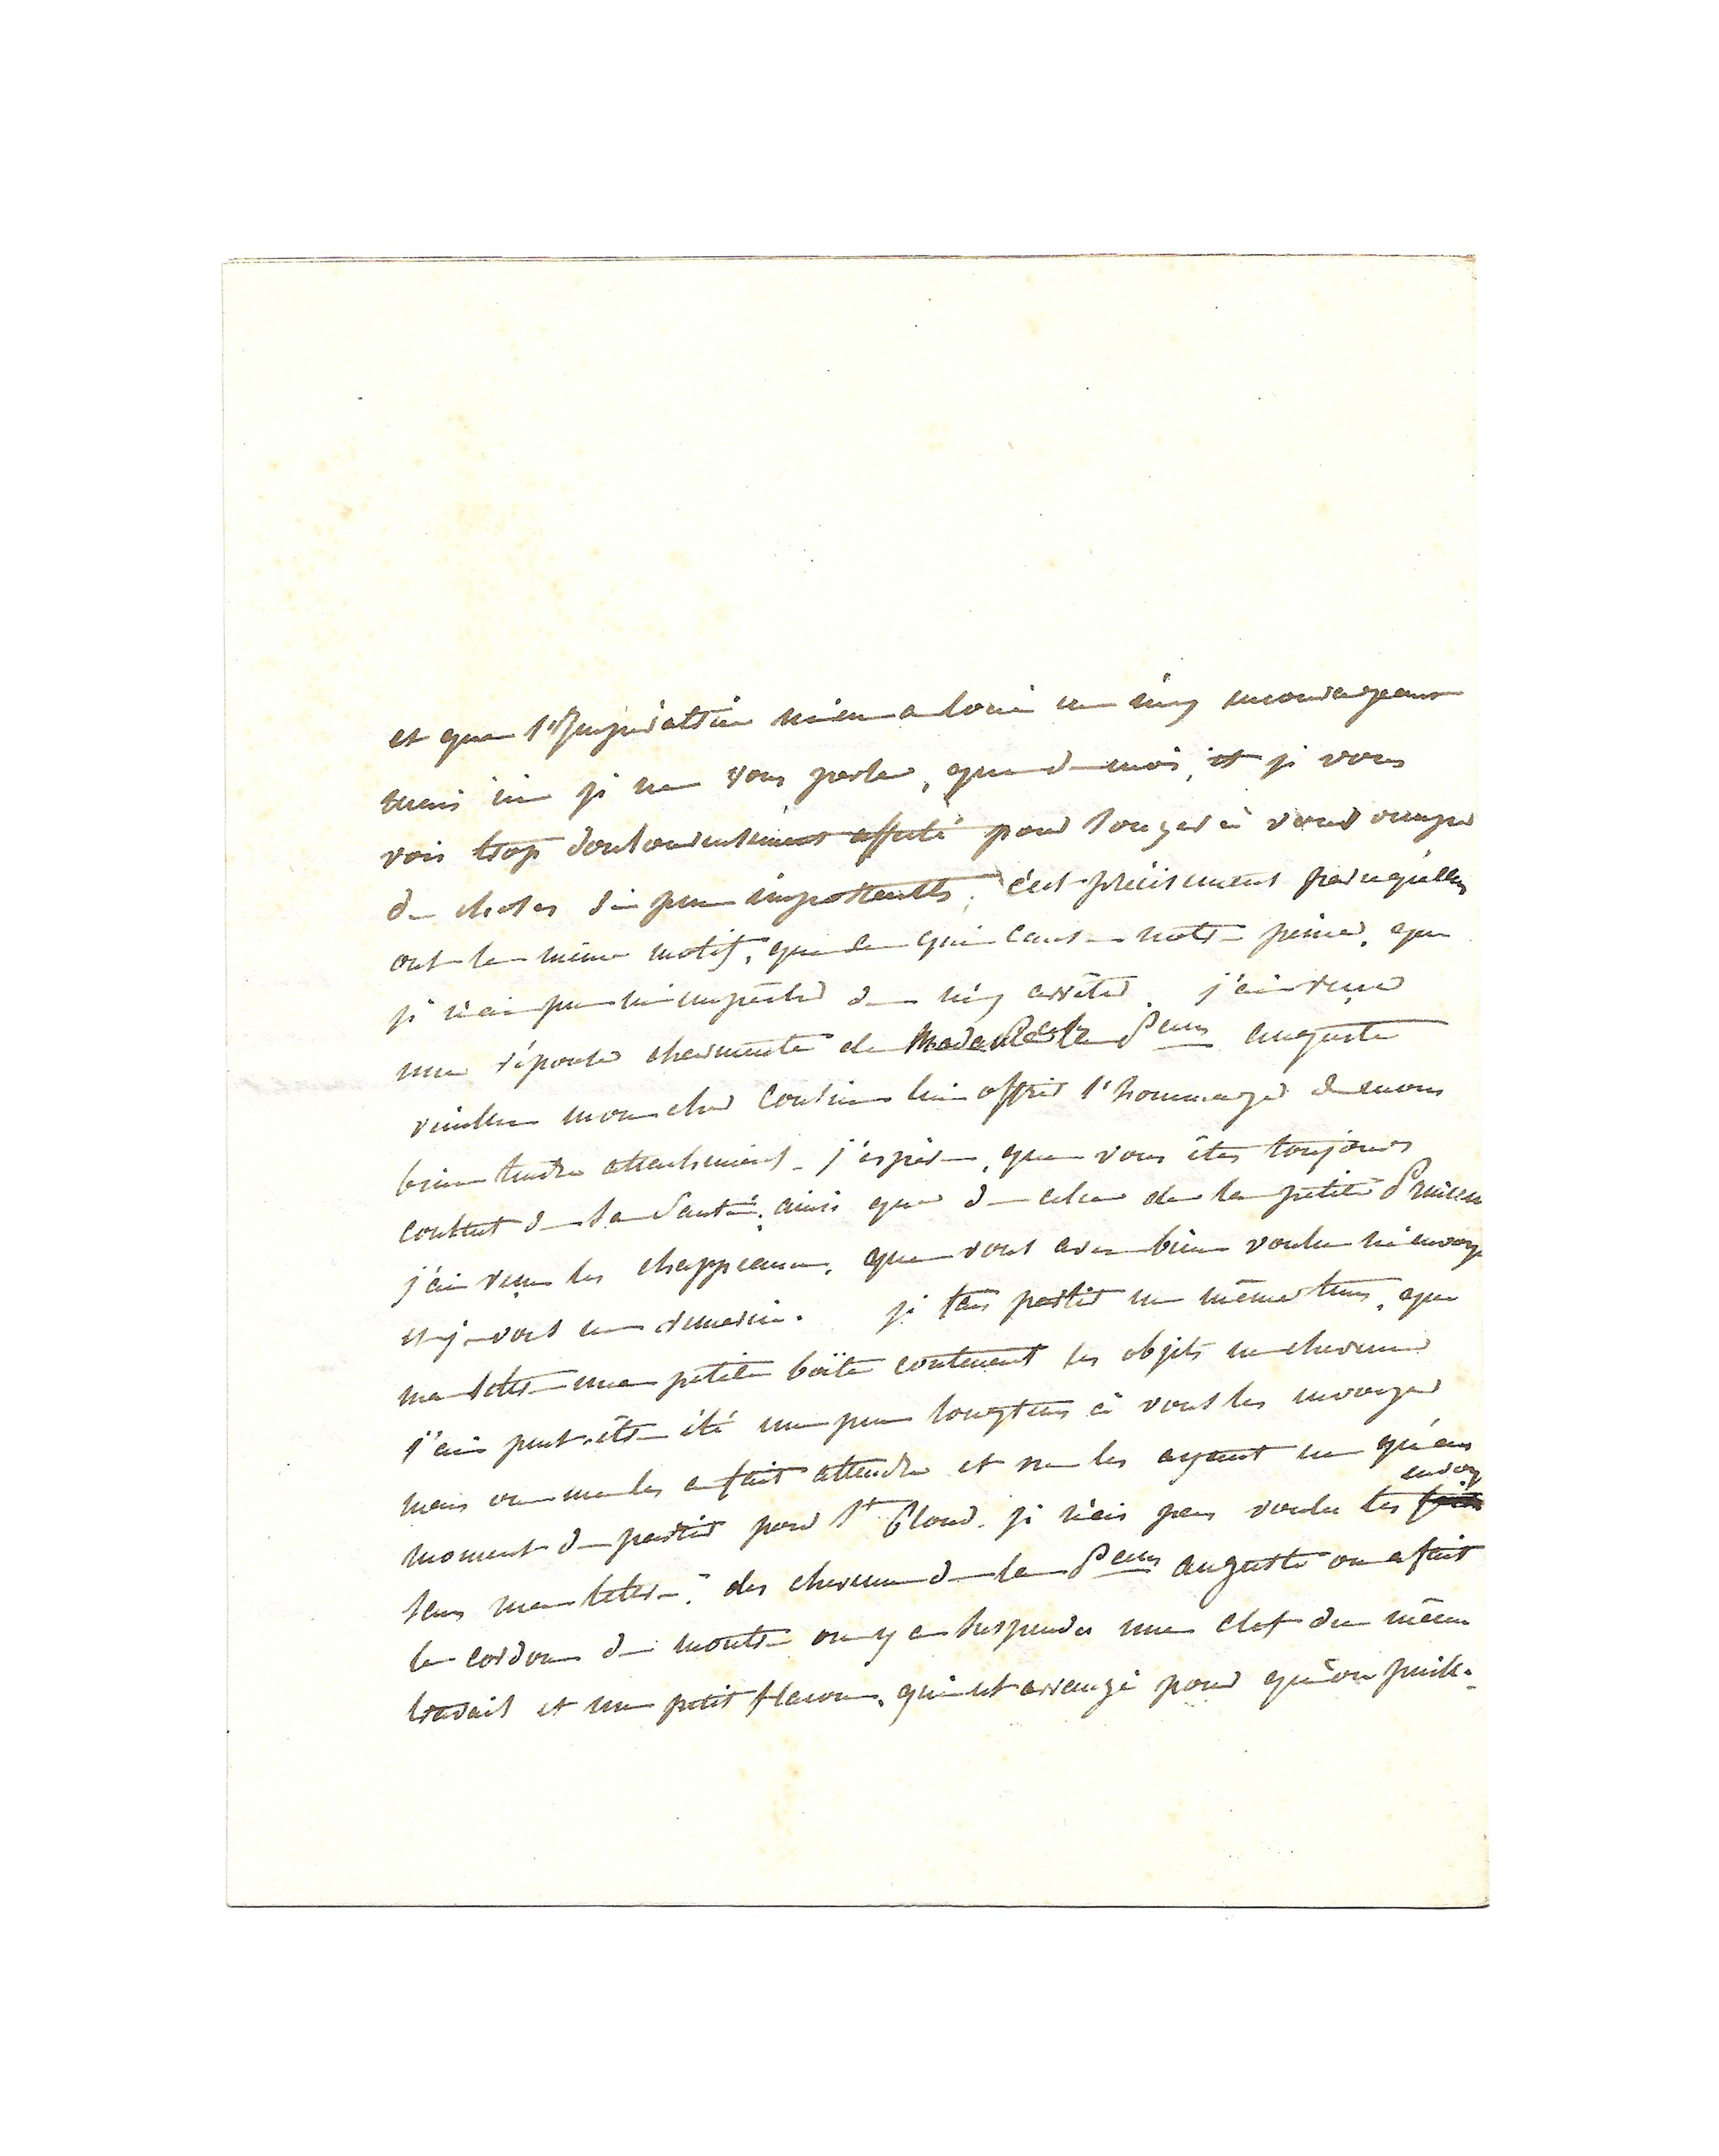 et que l'Impératrice m'en a loué en m'y encourageant
mais ici je ne vous parle, que de moi, et je vous
vois trop douloureusement affecté pour songer à vous occuper
de choses si peu importantes, c'est précisement parcequ'elles
ont le même motif, que ce qui cause notre peine, que
je n'ai pu m'empêcher de m'y arrêter. j'ai reçue
une réponse charmante de Madame la P^cesse auguste
veuillez mon cher Cousin lui offrir l'hommage de mon
bien tendre attachement. j'espère, que vous êtes toujours
content de sa Santé, ainsi que de celle de la petite Princesse
j'ai reçu les chappeaux, que vous avez bien voulu m'envoyer
et je vous en remercie. je fais partir en même tems, que
ma lettre une petite boîte contenant les objets en cheveux
j'ai peut-être été un peu longtems à vous les envoyer
mais on me les a fait attendre et ne les ayant eu qu'au
envoy
moment de partir pour S^t Cloud. je n'ais pas voulu les
sans ma lettre. des cheveux de la P^cesse auguste on a fait
le cordon de montre on y a suspendu une clef du même
travail et un petit flacon, qui est arrangé pour qu'on puisse